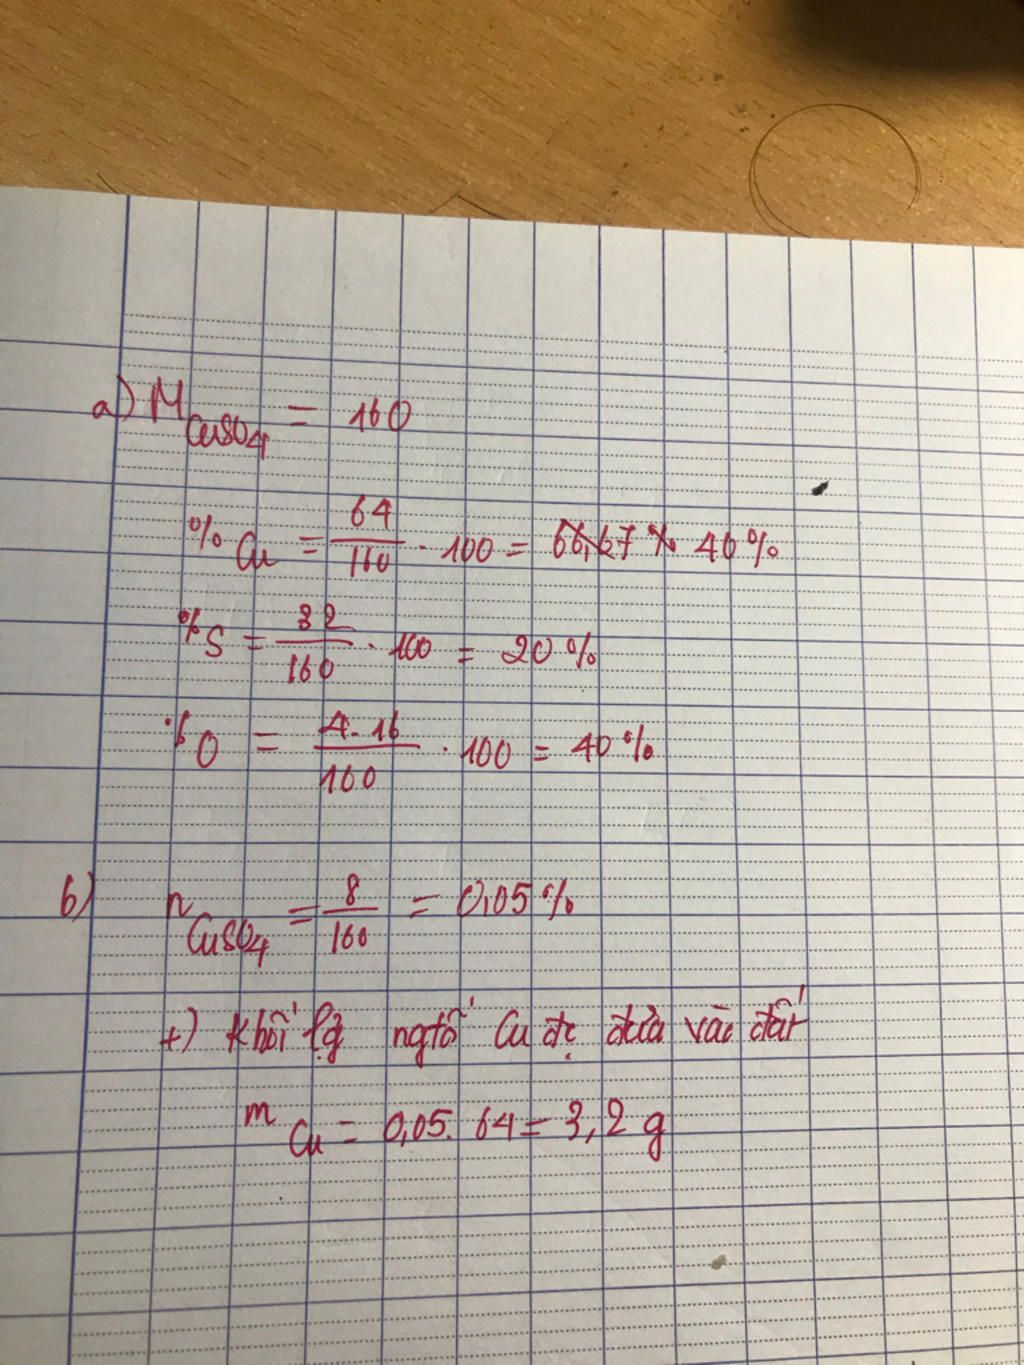 a) M CuSO4 = 160
% Cu = 64/160 . 100 = 66,67% 40%
% S = 32/160 . 100 = 20%
% O = 4.16/160 . 100 = 40%
b) n CuSO4 = 8/160 = 0,05%
+) Khối lg ngtố Cu đc đưa vào đất
m Cu = 0,05. 64 = 3,2 g